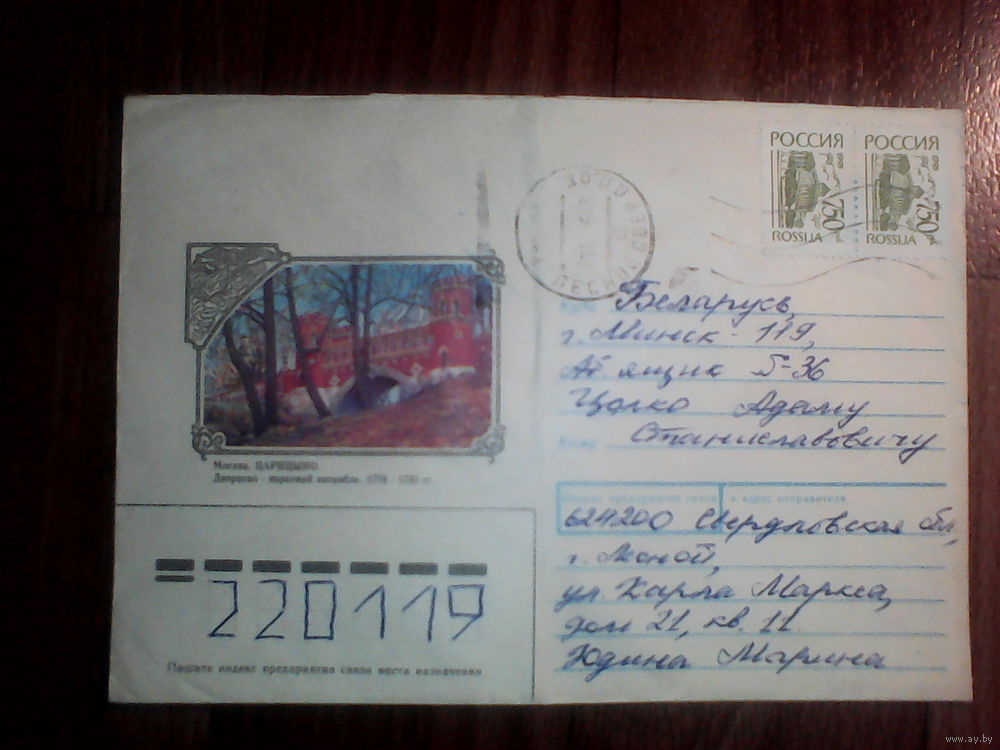 РОССИЯ РОССИЯ
750 750
ROSSIJA ROSSIJA
Беларусь,
г. Минск - 119,
Аб ящик 5-36
Цолко Адаму
Кому Станиславовичу
Москва. ЦАРИЦЫНО.
Дворцово - парковый ансамбль.
Индекс предприятия связи и адрес отправителя
624200 Свердловская обл,
г. Лесной,
ул Карла Маркса,
дом 21, кв. 11.
Юдина Марина
220119
Пишите индекс предприятия связи места назначения
www.ay.by